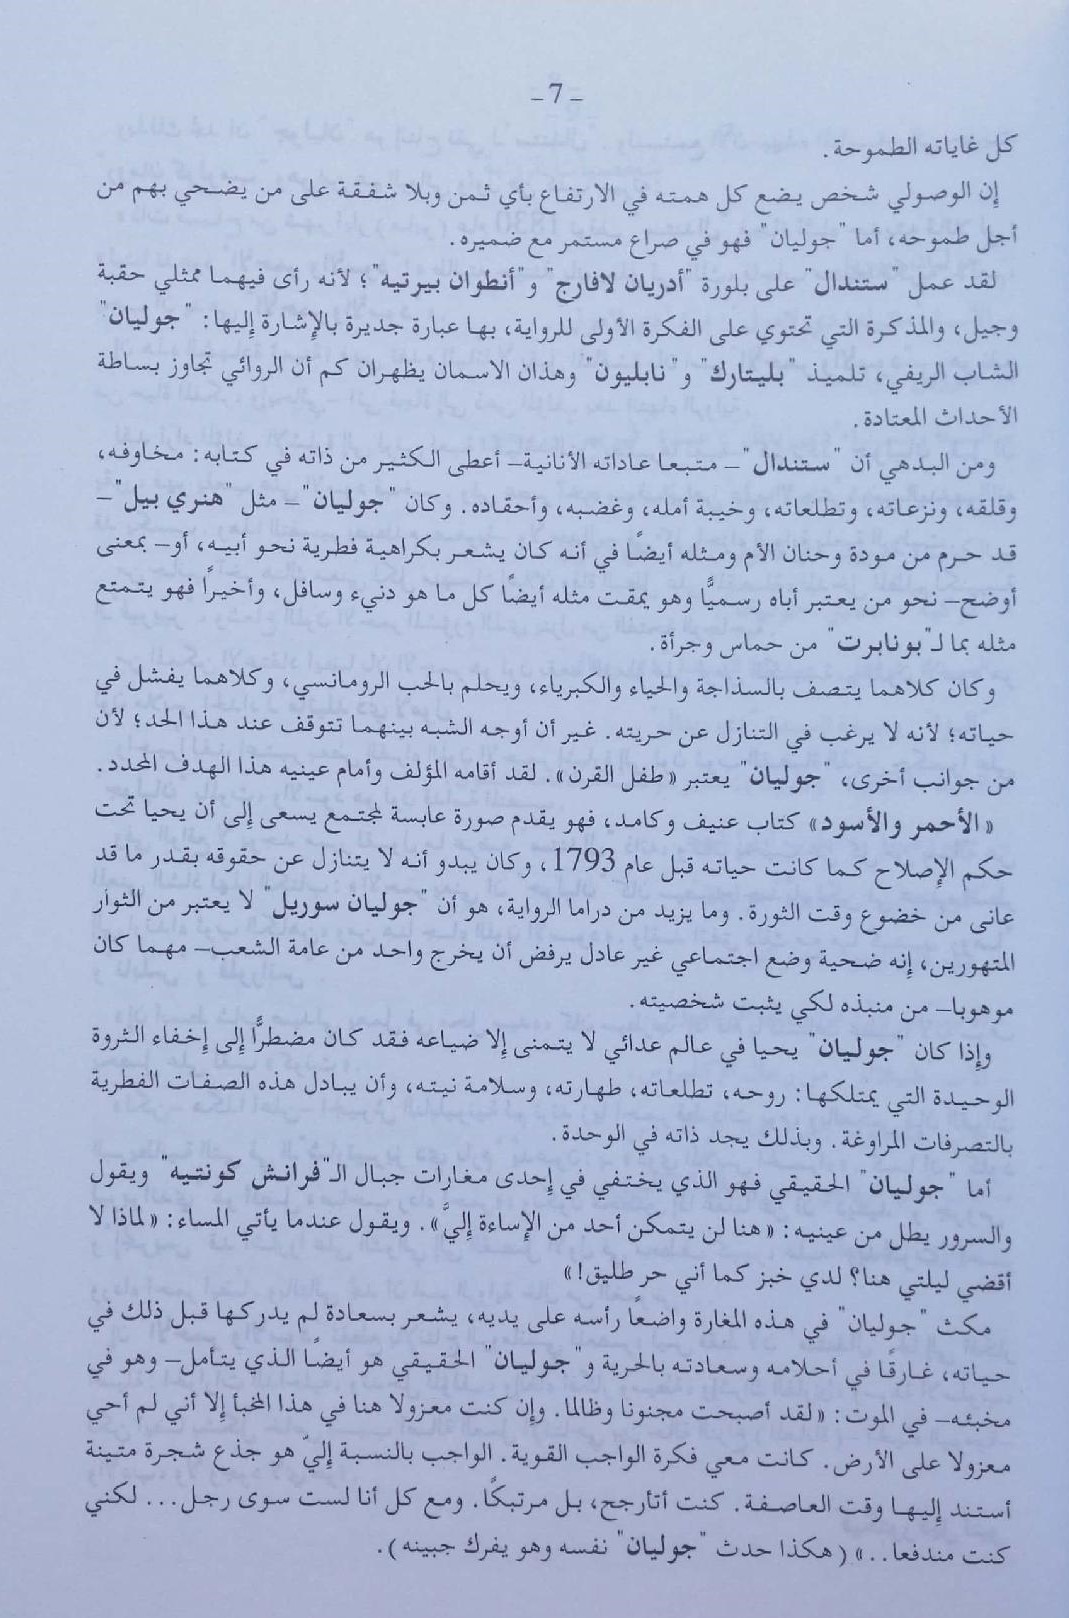 - 7 -
كل غاياته الطموحة.
إن الوصولي شخص يضع كل همته في الارتفاع بأي ثمن وبلا شفقة على من يضحي بهم من
أجل طموحه، أما "جوليان" فهو في صراع مستمر مع ضميره.
لقد عمل "ستندال" على بلورة "أدريان لافارج" و"أنطوان بيرتيه"؛ لأنه رأى فيهما ممثلي حقبة
وجيل، والمذكرة التي تحتوي على الفكرة الأولى للرواية، بها عبارة جديرة بالإشارة إليها: "جوليان"
الشاب الريفي، تلميذ "بليتارك" و"نابليون" وهذان الاسمان يظهران كم أن الروائي تجاوز بساطة
الأحداث المعتادة.
ومن البدهي أن "ستندال"– متبعا عاداته الأنانية– أعطى الكثير من ذاته في كتابه: مخاوفه،
وقلقه، ونزعاته، وتطلعاته، وخيبة أمله، وغضبه، وأحقاده. وكان "جوليان"– مثل "هنري بيل"–
قد حرم من مودة وحنان الأم ومثله أيضًا في أنه كان يشعر بكراهية فطرية نحو أبيه، أو– بمعنى
أوضح– نحو من يعتبر أباه رسميًّا وهو يمقت مثله أيضًا كل ما هو دنيء وسافل، وأخيراً فهو يتمتع
مثله بما لـ"بونابرت" من حماس وجرأة.
وكان كلاهما يتصف بالسذاجة والحياء والكبرياء، ويحلم بالحب الرومانسي، وكلاهما يفشل في
حياته؛ لأنه لا يرغب في التنازل عن حريته. غير أن أوجه الشبه بينهما تتوقف عند هذا الحد؛ لأن
من جوانب أخرى، "جوليان" يعتبر «طفل القرن». لقد أقامه المؤلف وأمام عينيه هذا الهدف المحدد.
«الأحمر والأسود» كتاب عنيف وكامد، فهو يقدم صورة عابسة لمجتمع يسعى إلى أن يحيا تحت
حكم الإصلاح كما كانت حياته قبل عام 1793، وكان يبدو أنه لا يتنازل عن حقوقه بقدر ما قد
عانى من خضوع وقت الثورة. وما يزيد من دراما الرواية، هو أن "جوليان سوريل" لا يعتبر من الثوار
المتهورين، إنه ضحية وضع اجتماعي غير عادل يرفض أن يخرج واحد من عامة الشعب– مهما كان
موهوبا– من منبذه لكي يثبت شخصيته.
وإذا كان "جوليان" يحيا في عالم عدائي لا يتمنى إلا ضياعه فقد كان مضطرًّا إلى إخفاء الثروة
الوحيدة التي يمتلكها: روحه، تطلعاته، طهارته، وسلامة نيته، وأن يبادل هذه الصفات الفطرية
بالتصرفات المراوغة. وبذلك يجد ذاته في الوحدة.
أما "جوليان" الحقيقي فهو الذي يختفي في إحدى مغارات جبال الـ"فرانش كونتيه" ويقول
والسرور يطل من عينيه: «هنا لن يتمكن أحد من الإساءة إليَّ». ويقول عندما يأتي المساء: «لماذا لا
أقضي ليلتي هنا؟ لدي خبز كما أني حر طليق!»
مكث "جوليان" في هذه المغارة واضعًا رأسه على يديه، يشعر بسعادة لم يدركها قبل ذلك في
حياته، غارقًا في أحلامه وسعادته بالحرية و"جوليان" الحقيقي هو أيضًا الذي يتأمل– وهو في
مخبئه– في الموت: «لقد أصبحت مجنونا وظالما. وإن كنت معزولا هنا في هذا المخبأ إلا أني لم أحي
معزولا على الأرض. كانت معي فكرة الواجب القوية. الواجب بالنسبة إليّ هو جذع شجرة متينة
أستند إليها وقت العاصفة. كنت أتأرجح، بل مرتبكًا. ومع كل أنا لست سوى رجل... لكني
كنت مندفعا..» (هكذا حدث "جوليان" نفسه وهو يفرك جبينه).